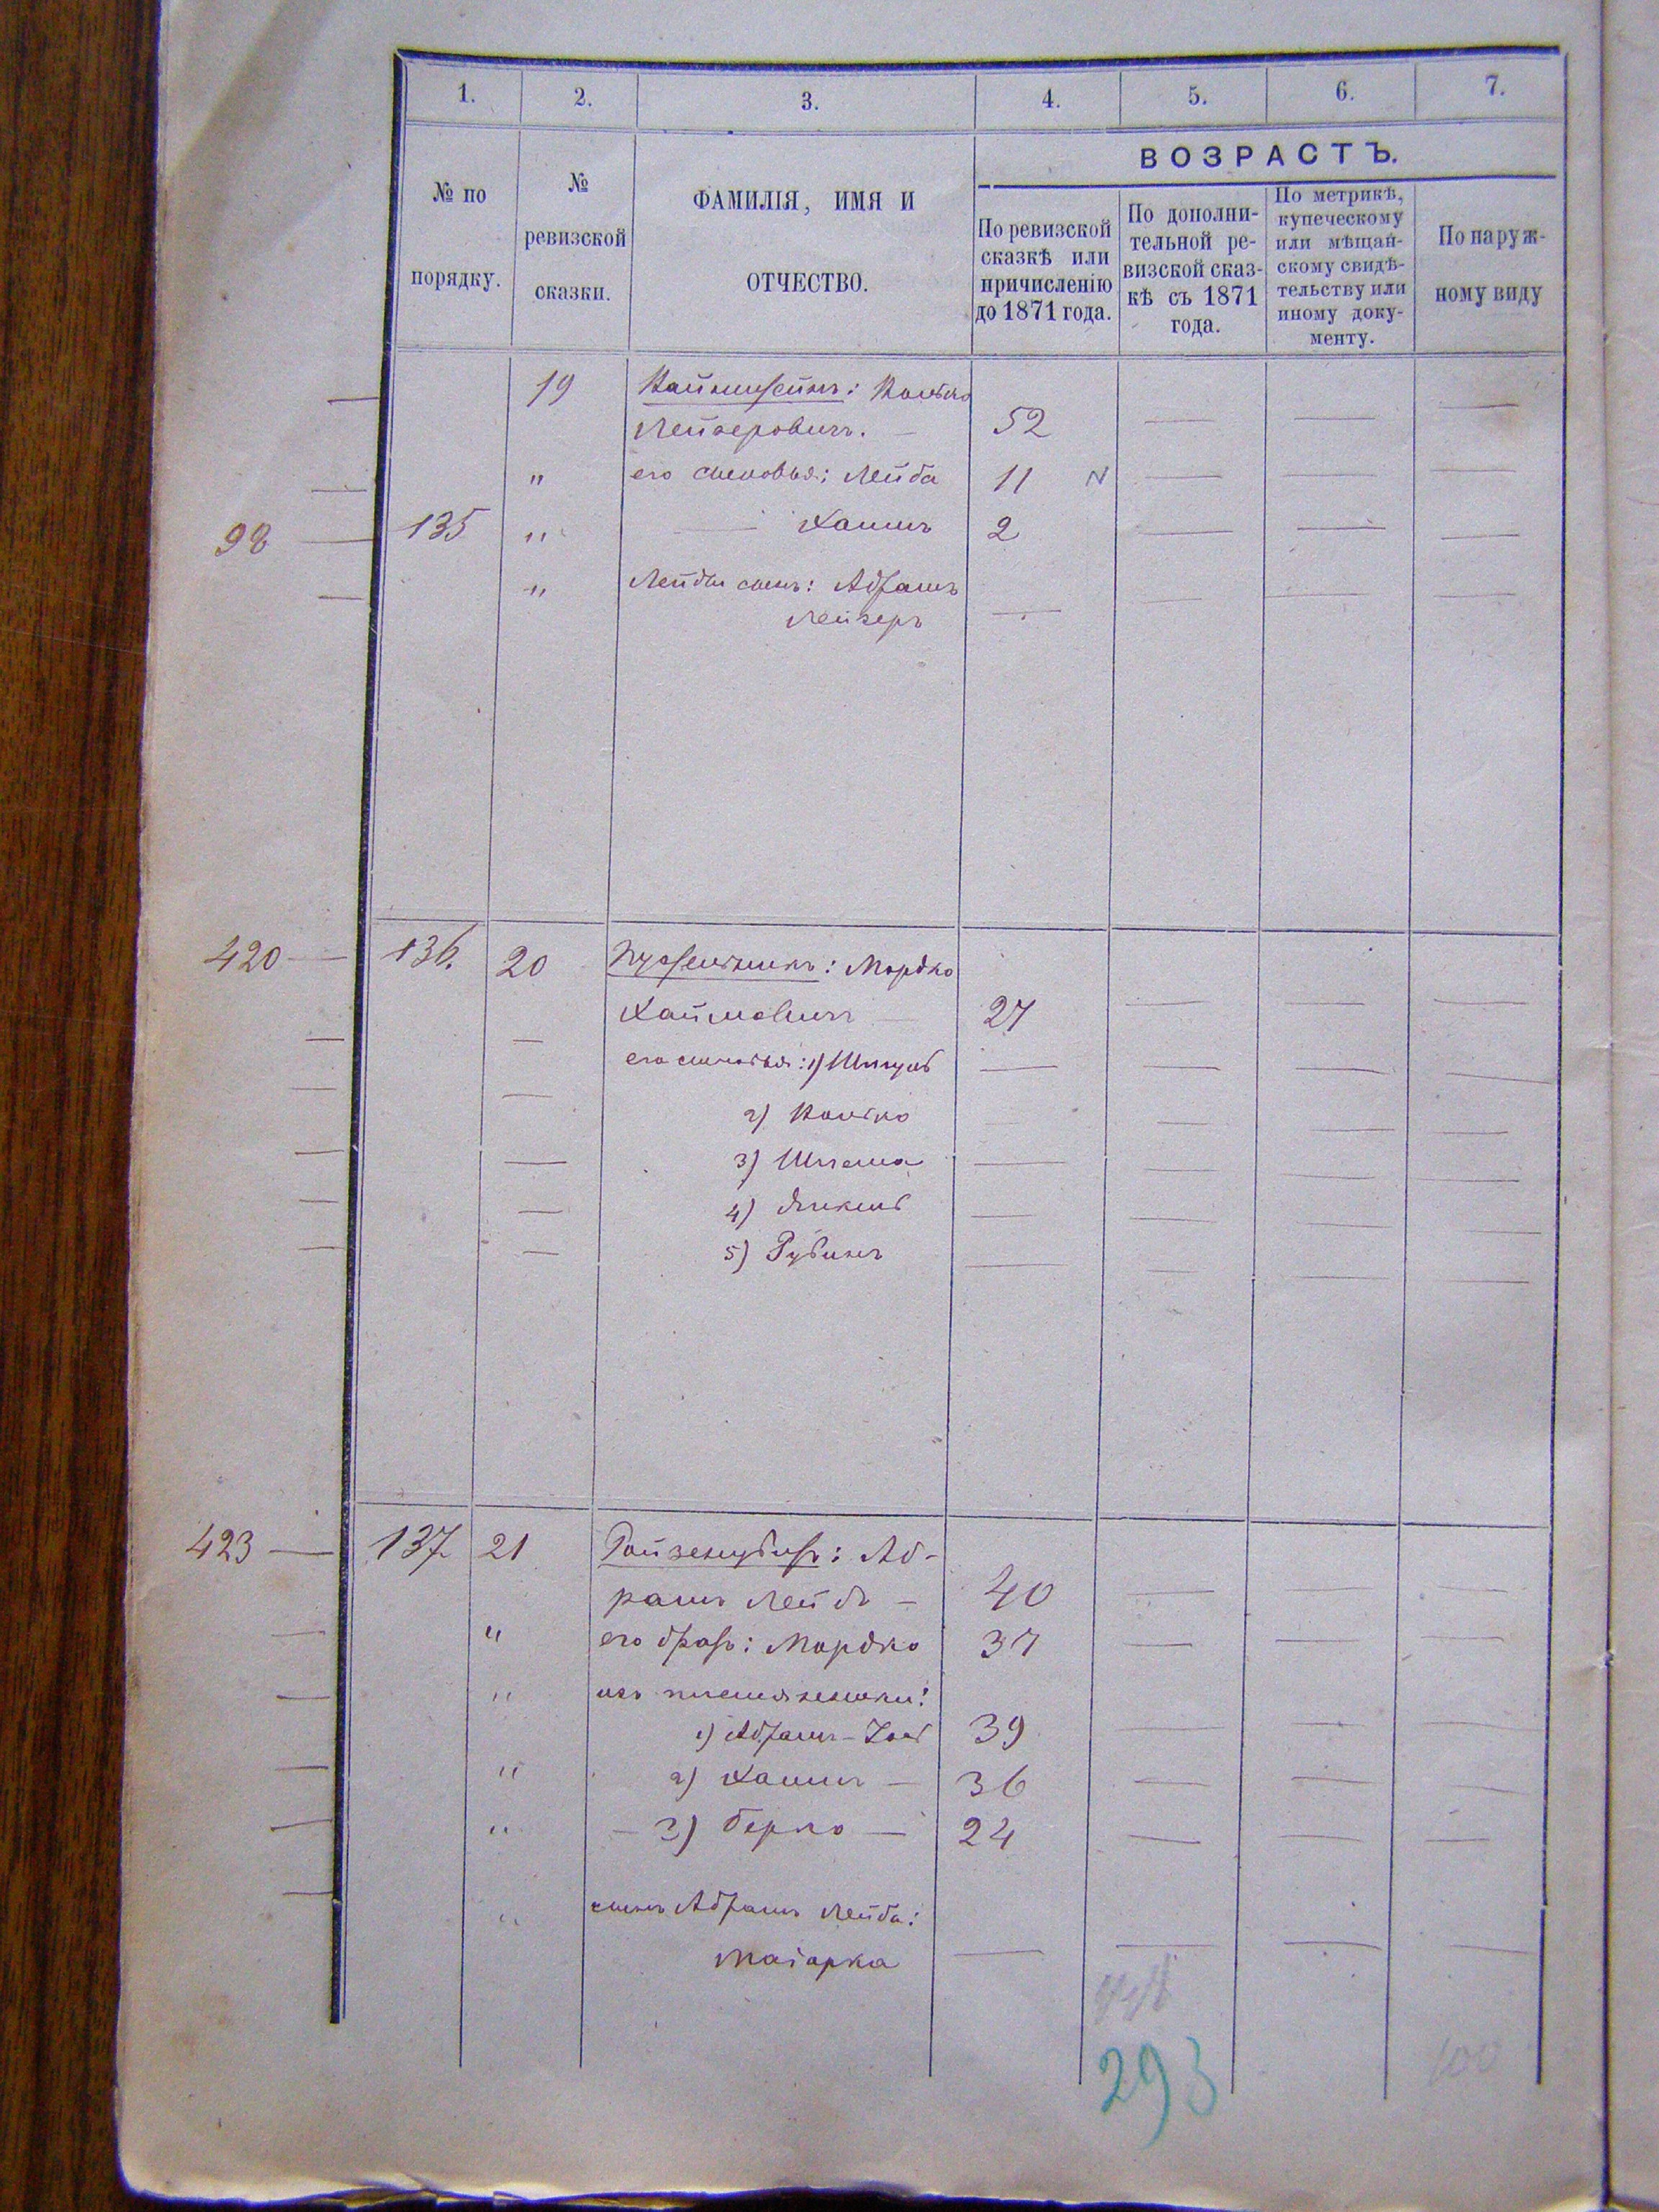 1. 2. 3. 4. 5. 6. 7.
№ по порядку.
№ ревизской сказки.
ФАМИЛІЯ, ИМЯ И ОТЧЕСТВО.
ВОЗРАСТЪ.
По ревизской
сказкѣ или
причисленію
до 1871 года.
По дополни-
тельной ре-
визской сказ-
кѣ съ 1871
года.
По метрикѣ,
купеческому
или мѣщан-
скому свидѣ-
тельству или
иному доку-
менту.
По наруж-
ному виду
19
Лейзеровичъ. — 52
" его сыновья: Лейба 11
98 — 135 " — Хаимъ 2
" Лейбы сынъ: Абрамъ
Лейзеръ —
420 — 136. 20 : Мордко
Хаймовичъ — 27
его сыновья: 1) Шмуль
2)
3) Шлема
4)
5) Рубинъ
423 — 137 21 : Аб-
рамъ Лейбъ — 40
" его братъ: Мордко 37
" ихъ племянники:
1) Абрамъ- 39
" 2) Хаимъ — 36
" — 3) Берко — 24
" сынъ Абрамъ Лейба:
—
293
100